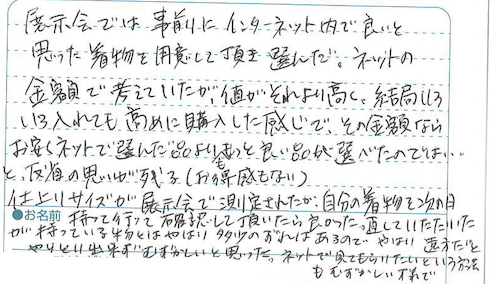 展示会では事前にインターネット内で良いと
思った着物を用意して頂き選んだ。ネットの
金額で考えていたが、値がそれより高く、結局いろ
いろ入れても高めに購入した感じで、その金額なら
お安くネットで選んだ品よりもっと良い品が選べたのでは…
と、反省の思いが残る(お得感もない)
仕上りサイズが展示会で測定されたが、自分の着物を次の日
●お名前 持って行って確認して頂いたら良かった、直していただいた
が持っている物とはやはり多少のずれはあるので やはり 遠方だと
やりとり出来ずむずかしいと思った。ネットで見てもらいたいという方法
もむずかしい様で